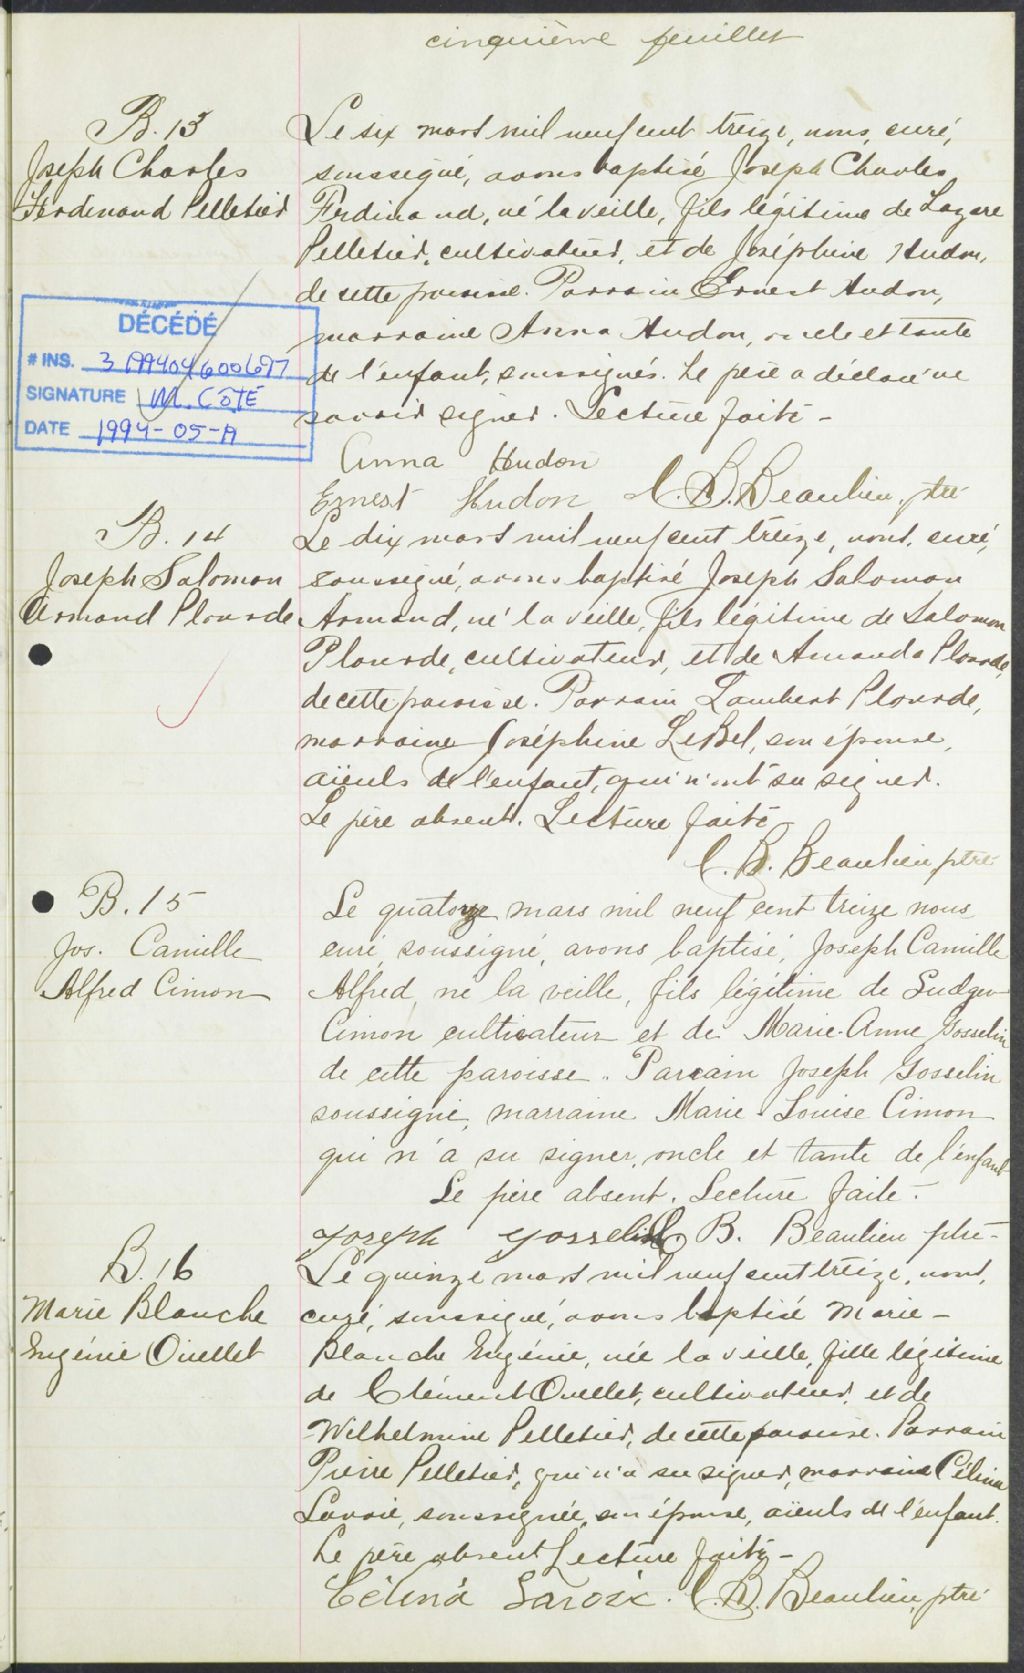 cinquième feuillet
B. 13
Joseph Charles
Ferdinand Pelletier
Le six mars mil neuf cent treize, nous, curé,
soussigné, avons baptisé Joseph Charles
Ferdinand, né la veille, fils légitime de Lazare
Pelletier, cultivateur, et de Joséphine Hudon,
de cette paroisse. Parrain Ernest Hudon,
marraine Anna Hudon, oncle et tante
de l'enfant, soussignés. Le père a déclaré ne
savoir signer. Lecture faite -
Anna Hudon
Ernest Hudon C. B. Beaulieu, ptre
DÉCÉDÉ
# INS.
SIGNATURE M. CÔTÉ
DATE 1994-05-
B. 14
Joseph Salomon
Armand Plourde
Le dix mars mil neuf cent treize, nous, curé,
soussigné, avons baptisé Joseph Salomon
Armand, né la veille, fils légitime de Salomon
Plourde, cultivateur, et de Amanda Plourde,
de cette paroisse. Parrain Lambert Plourde,
marraine Joséphine LeBel, son épouse,
aïeuls de l'enfant, qui n'ont su signer.
Le père absent. Lecture faite
C. B. Beaulieu ptre
B. 15
Jos. Camille
Alfred Cimon
Le quatorze mars mil neuf cent treize nous
curé soussigné, avons baptisé, Joseph Camille
Alfred, né la veille, fils légitime de Ludger
Cimon cultivateur et de Marie-Anne Gosselin
de cette paroisse. Parrain Joseph Gosselin
soussigné, marraine Marie-Louise Cimon
qui n'a su signer, oncle et tante de l'enfant
Le père absent. Lecture faite.
Joseph Gosselin C B. Beaulieu ptre-
B. 16
Marie Blanche
Eugénie Ouellet
Le quinze mars mil neuf cent treize, nous,
curé, soussigné, avons baptisé Marie-
Blanche Eugénie, née la veille, fille légitime
de Clément Ouellet, cultivateur, et de
Wilhelmine Pelletier, de cette paroisse. Parrain
Pierre Pelletier, qui n'a su signer, marraine Célina
Lavoie, soussignée, son épouse, aïeuls de l'enfant.
Le père absent Lecture faite -
Célina Lavoix. C. B. Beaulieu, ptre